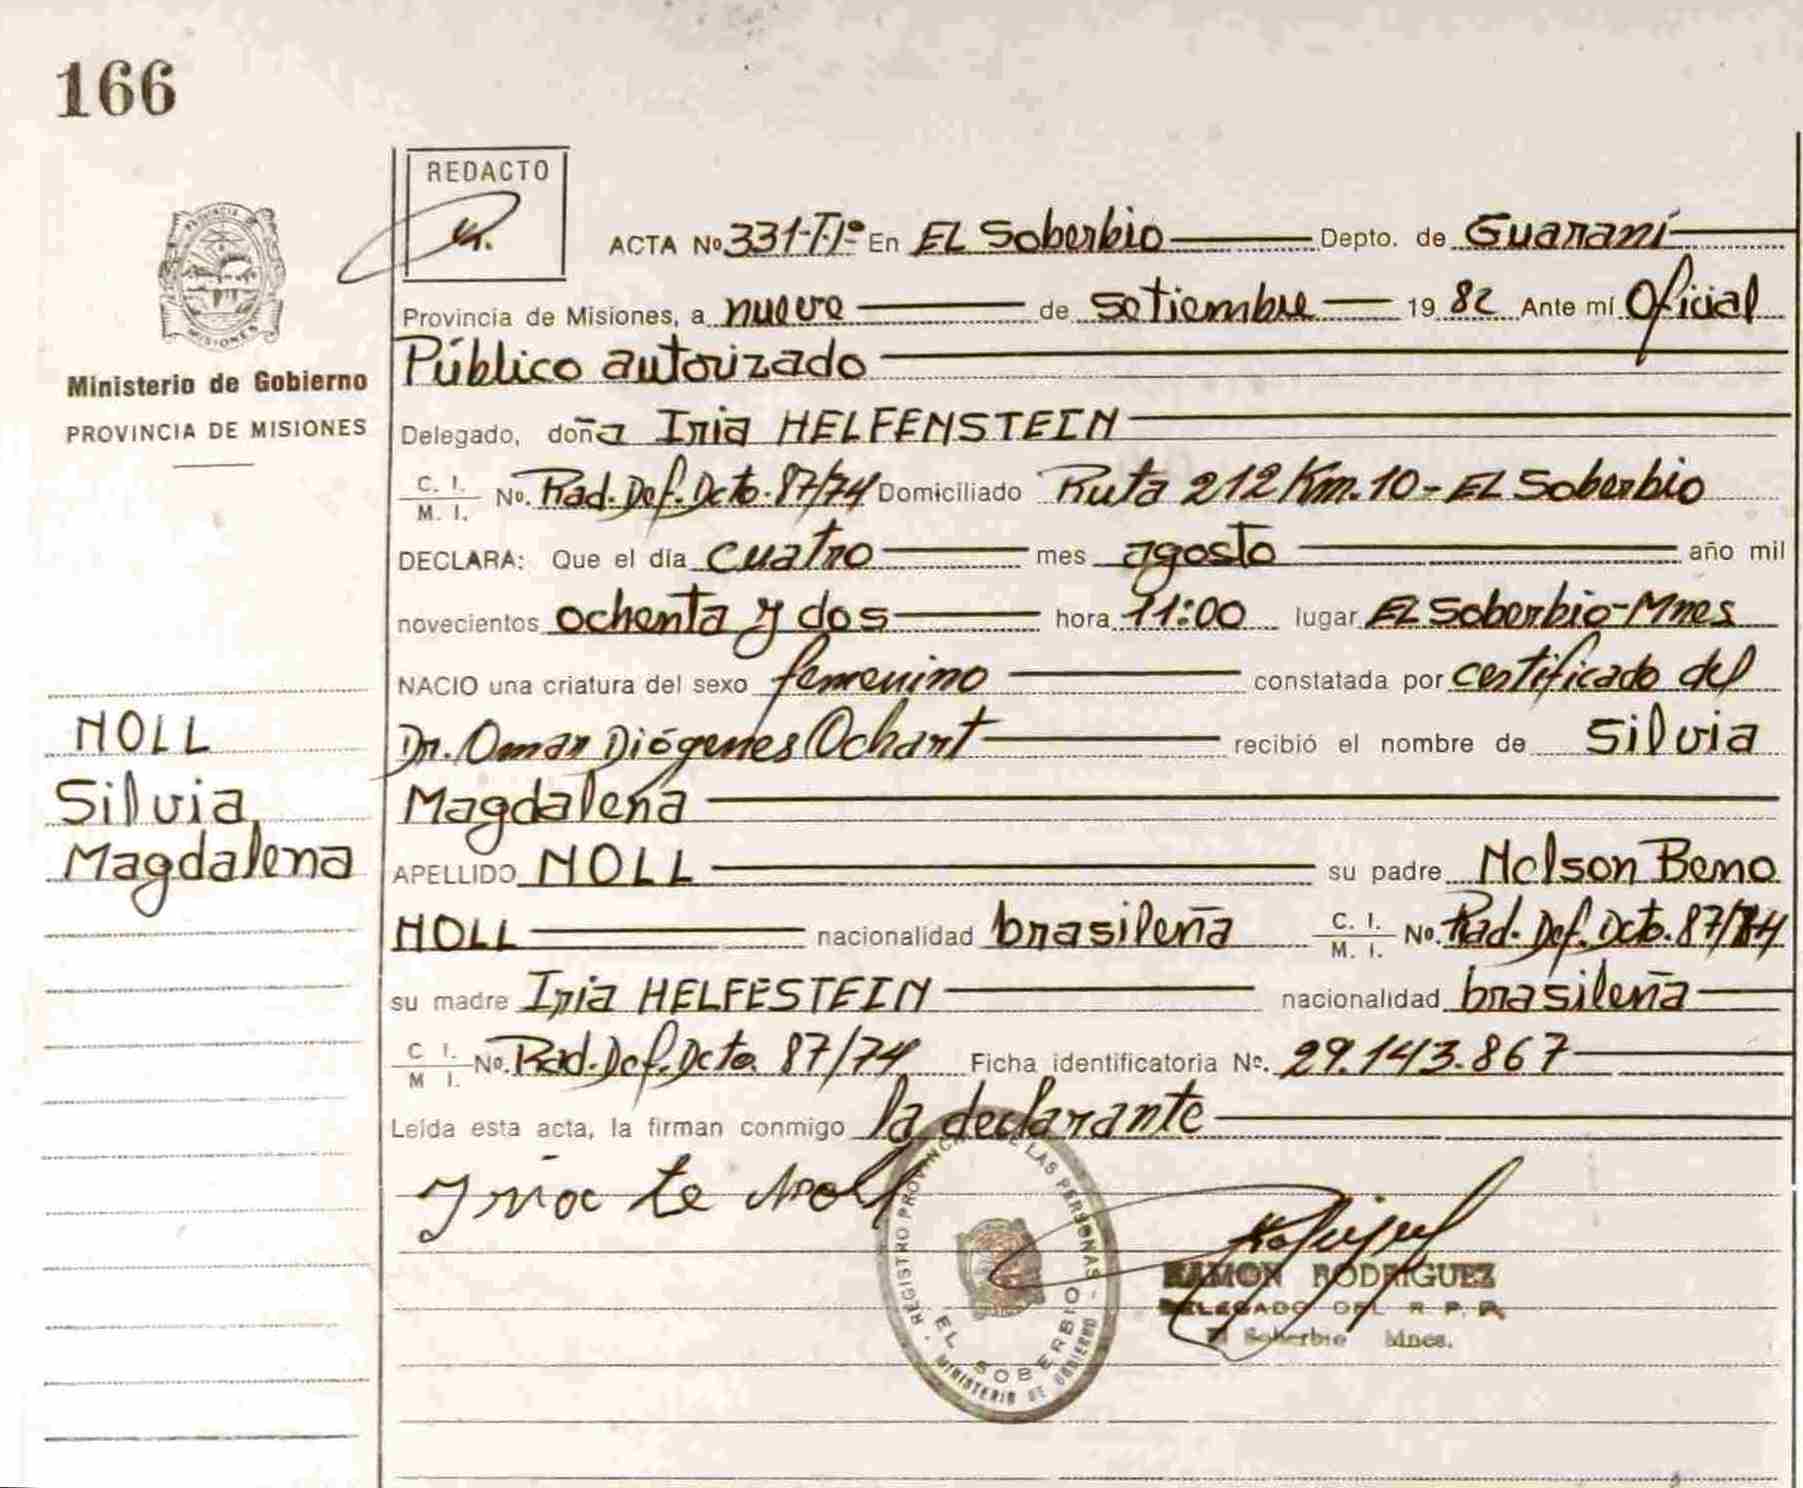 166
REDACTO
ACTA Nº 331-T.Iº En EL Soberbio Depto. de Guaraní
Provincia de Misiones, a nueve de setiembre 1982 Ante mí Oficial
Público autorizado
Delegado, doña Iria HELFENSTEIN
C. I. M. I. Nº. Rad. Def. Dcto. 87/74 Domiciliado Ruta 212 Km. 10 - EL Soberbio
DECLARA: Que el día cuatro mes agosto año mil
novecientos ochenta y dos hora 11:00 lugar EL Soberbio-Mnes
NACIO una criatura del sexo femenino constatada por certificado del
Dr. Omar Diógenes Ochart recibió el nombre de Silvia
Magdalena
APELLIDO NOLL su padre Nelson Beno
NOLL nacionalidad brasileña C. I. M. I. Nº. Rad. Def. Dcto. 87/74
su madre Iria HELFESTEIN nacionalidad brasileña
C. I. M. I. Nº. Rad. Def. Dcto. 87/74 Ficha identificatoria Nº. 29.143.867
Leída esta acta, la firman conmigo la declarante
PROVINCIA DE MISIONES
Ministerio de Gobierno
PROVINCIA DE MISIONES
NOLL
Silvia
Magdalena
REGISTRO PROVINCIAL DE LAS PERSONAS
EL SOBERBIO
MINISTERIO DE GOBIERNO
RAMON RODRIGUEZ
DELEGADO DEL R. P. P.
El Soberbio Mnes.